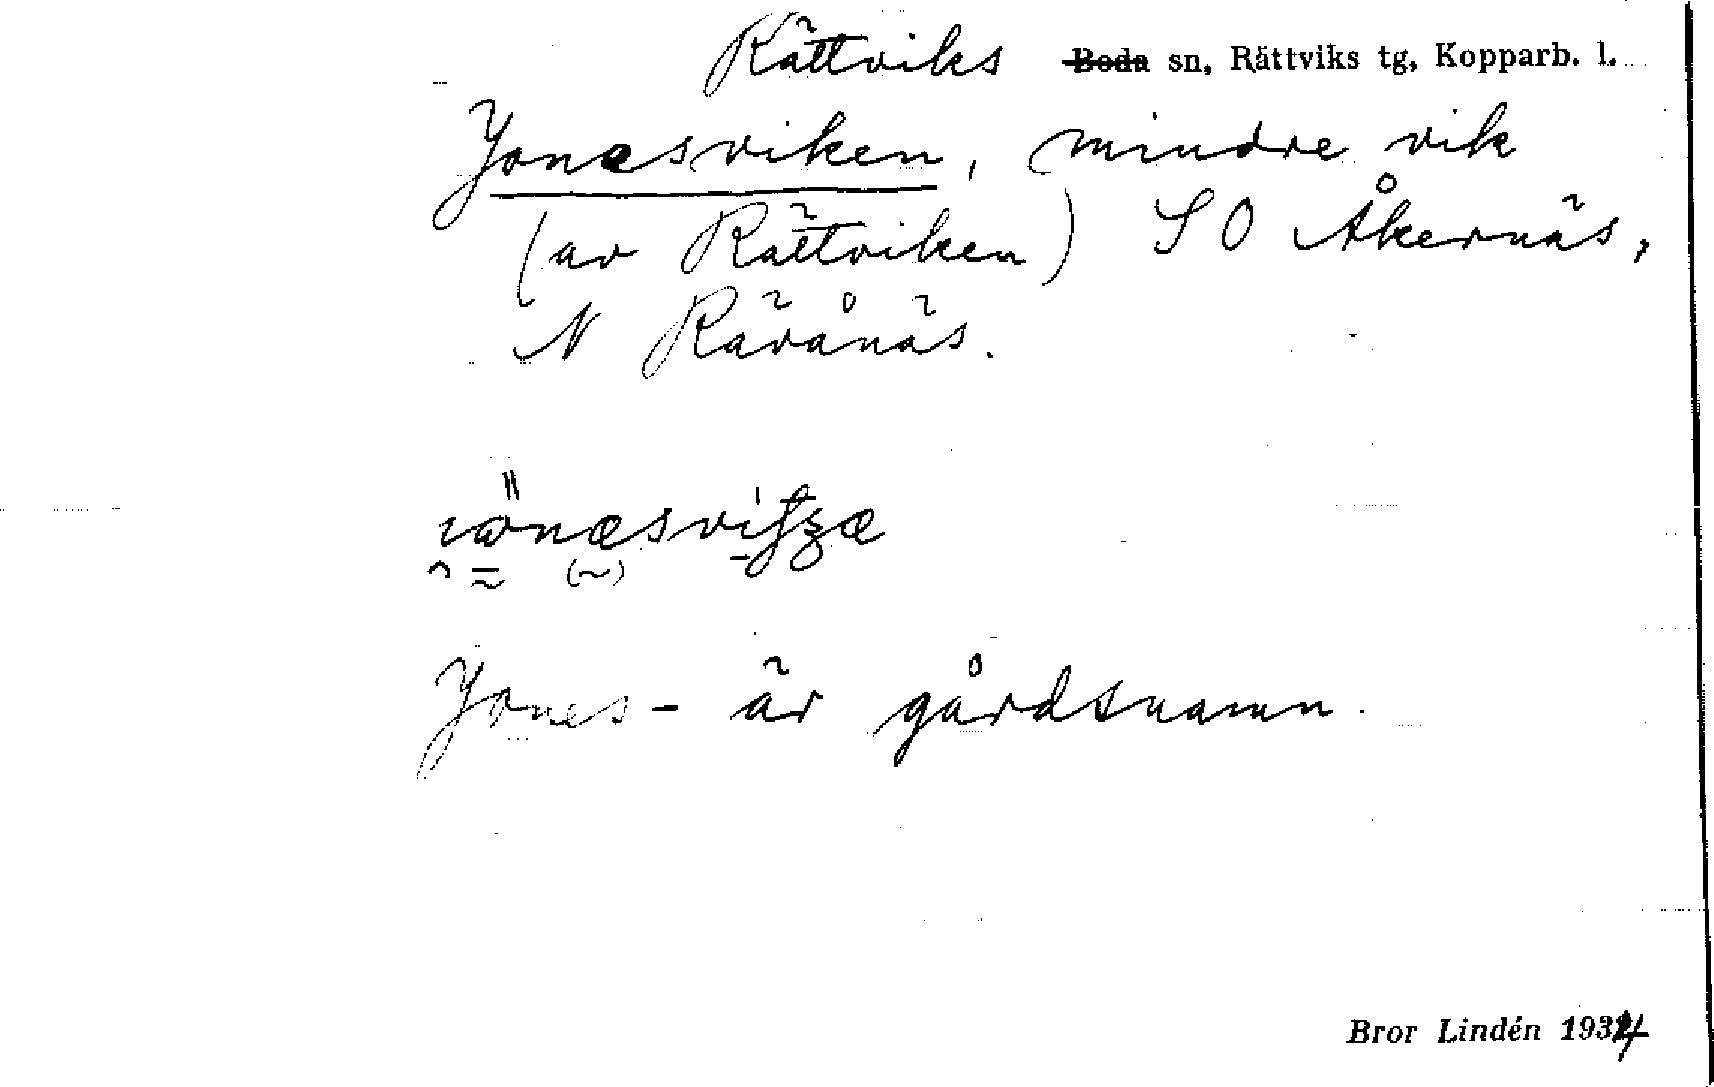 Rättviks ~~Boda~~ sn, Rättviks tg, Kopparb. l.
Jonesviken, mindre vik
(av Rättviken) SO Åkernäs,
N Rävånäs.
Jones- är gårdsnamn.
Bror Lindén 1934